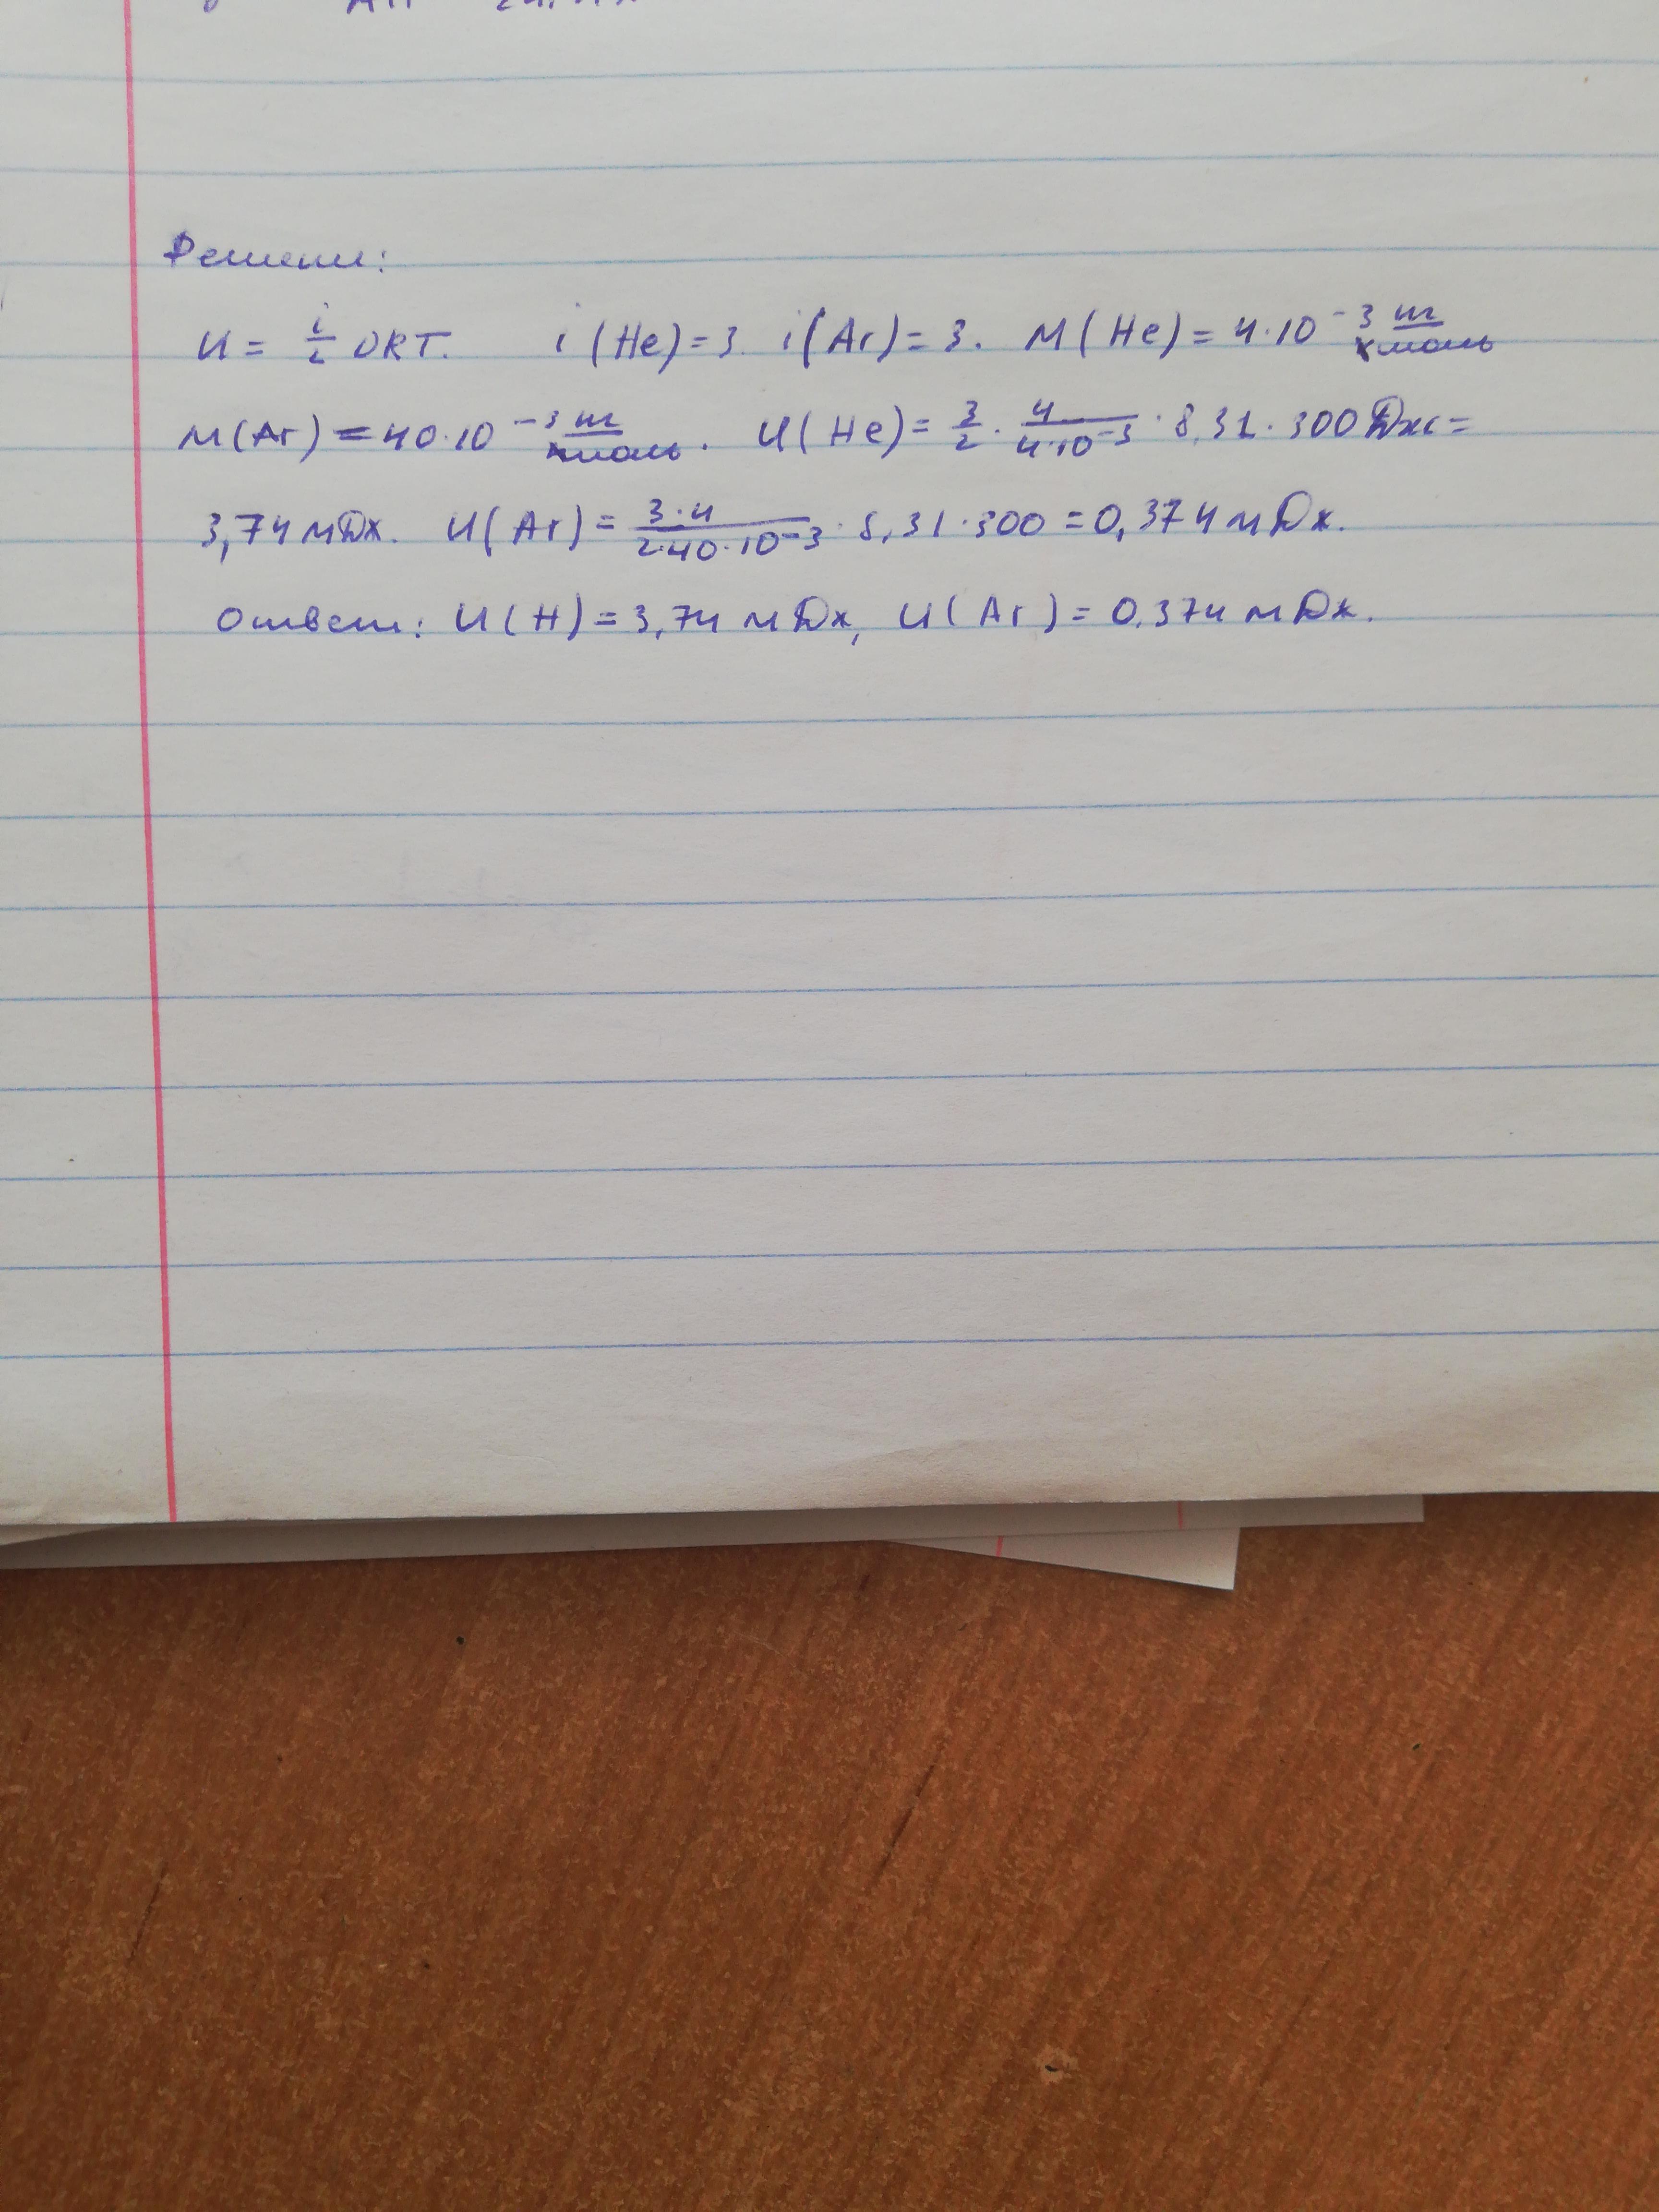 Решени:
U = i/2 νRT. i (He) = 3. i (Ar) = 3. M (He) = 4·10⁻³ кг/моль
M (Ar) = 40·10⁻³ кг/моль. U (He) = 3/2 · 4/4·10⁻³ · 8,31 · 300 Дж =
3,74 МДж. U (Ar) = 3·4/2·40·10⁻³ · 8,31·300 = 0,374 МДж.
Ответ: U (H) = 3,74 МДж, U (Ar) = 0,374 МДж.